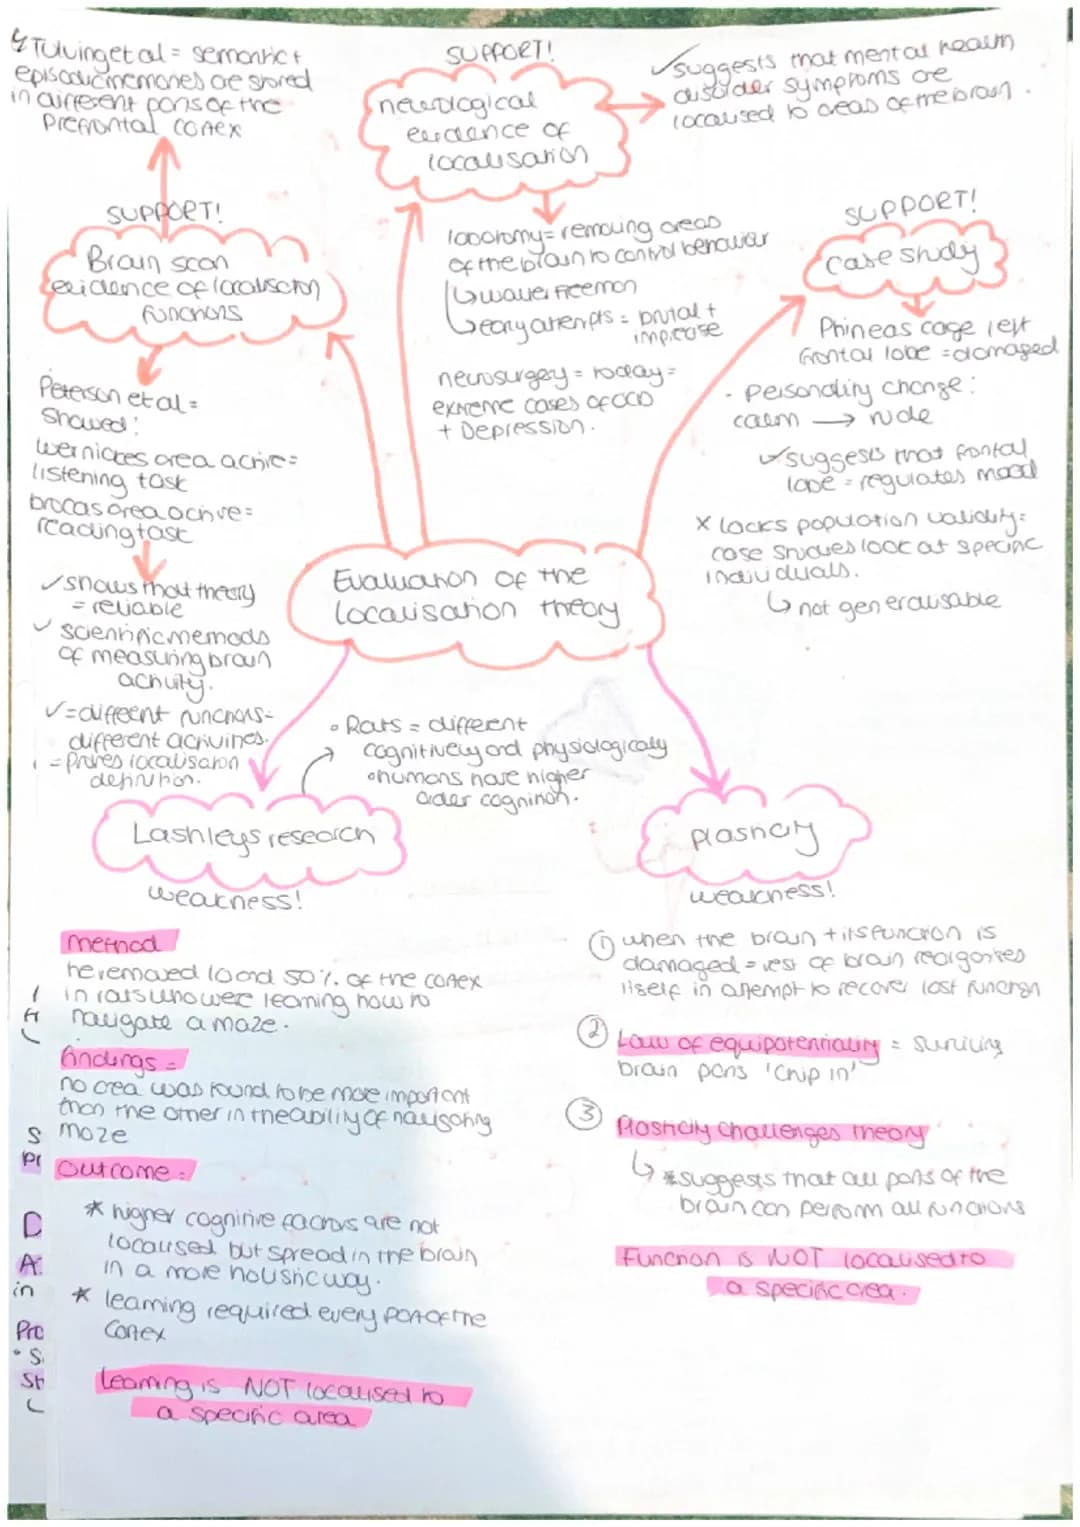 ↳ Tulving et al = semantic +
episodic memories are stored
in different parts of the
Prefrontal cortex
SUPPORT!
Brain scan
evidence of localisation
functions
Peterson et al =
showed:
wernickes area active =
listening task
brocas area active =
reading task
✓ shows that theory
= reliable
✓ scientific methods
of measuring brain
activity.
✓ = different functions =
different activities.
= proves localisation
definition.
SUPPORT!
neurological
evidence of
localisation
✓ suggests that mental health
disorder symptoms are
localised to areas of the brain.
lobotomy = removing areas
of the brain to control behaviour
↳ walter freeman
↳ early attempts = brutal +
imprecise
neurosurgery = today =
extreme cases of OCD
+ Depression.
SUPPORT!
case study
Phineas cage left
frontal lobe = damaged
- Personality change:
calm → rude
✓ suggests that frontal
lobe = regulates mood
X lacks population validity =
case studies look at specific
individuals.
↳ not generalisable
Evaluation of the
localisation theory
• Rats = different
cognitively and physiologically
• humans have higher
order cognition.
Lashleys research
weakness!
method
he removed 10 and 50% of the cortex
in rats who were learning how to
navigate a maze.
findings =
no area was found to be more important
than the other in the ability of navigating
maze
outcome =
* higher cognitive factors are not
localised but spread in the brain
in a more holistic way.
* learning required every part of the
cortex
learning is NOT localised to
a specific area
plasticity
weakness!
① when the brain + its function is
damaged = rest of brain reorganises
itself in attempt to recover lost function
② Law of equipotentiality = surviving
brain parts 'chip in'
③ Plasticity challenges theory
↳ * suggests that all parts of the
brain can perform all functions
Function is NOT localised to
a specific area.
S
D
A
in
Pro
• S
St